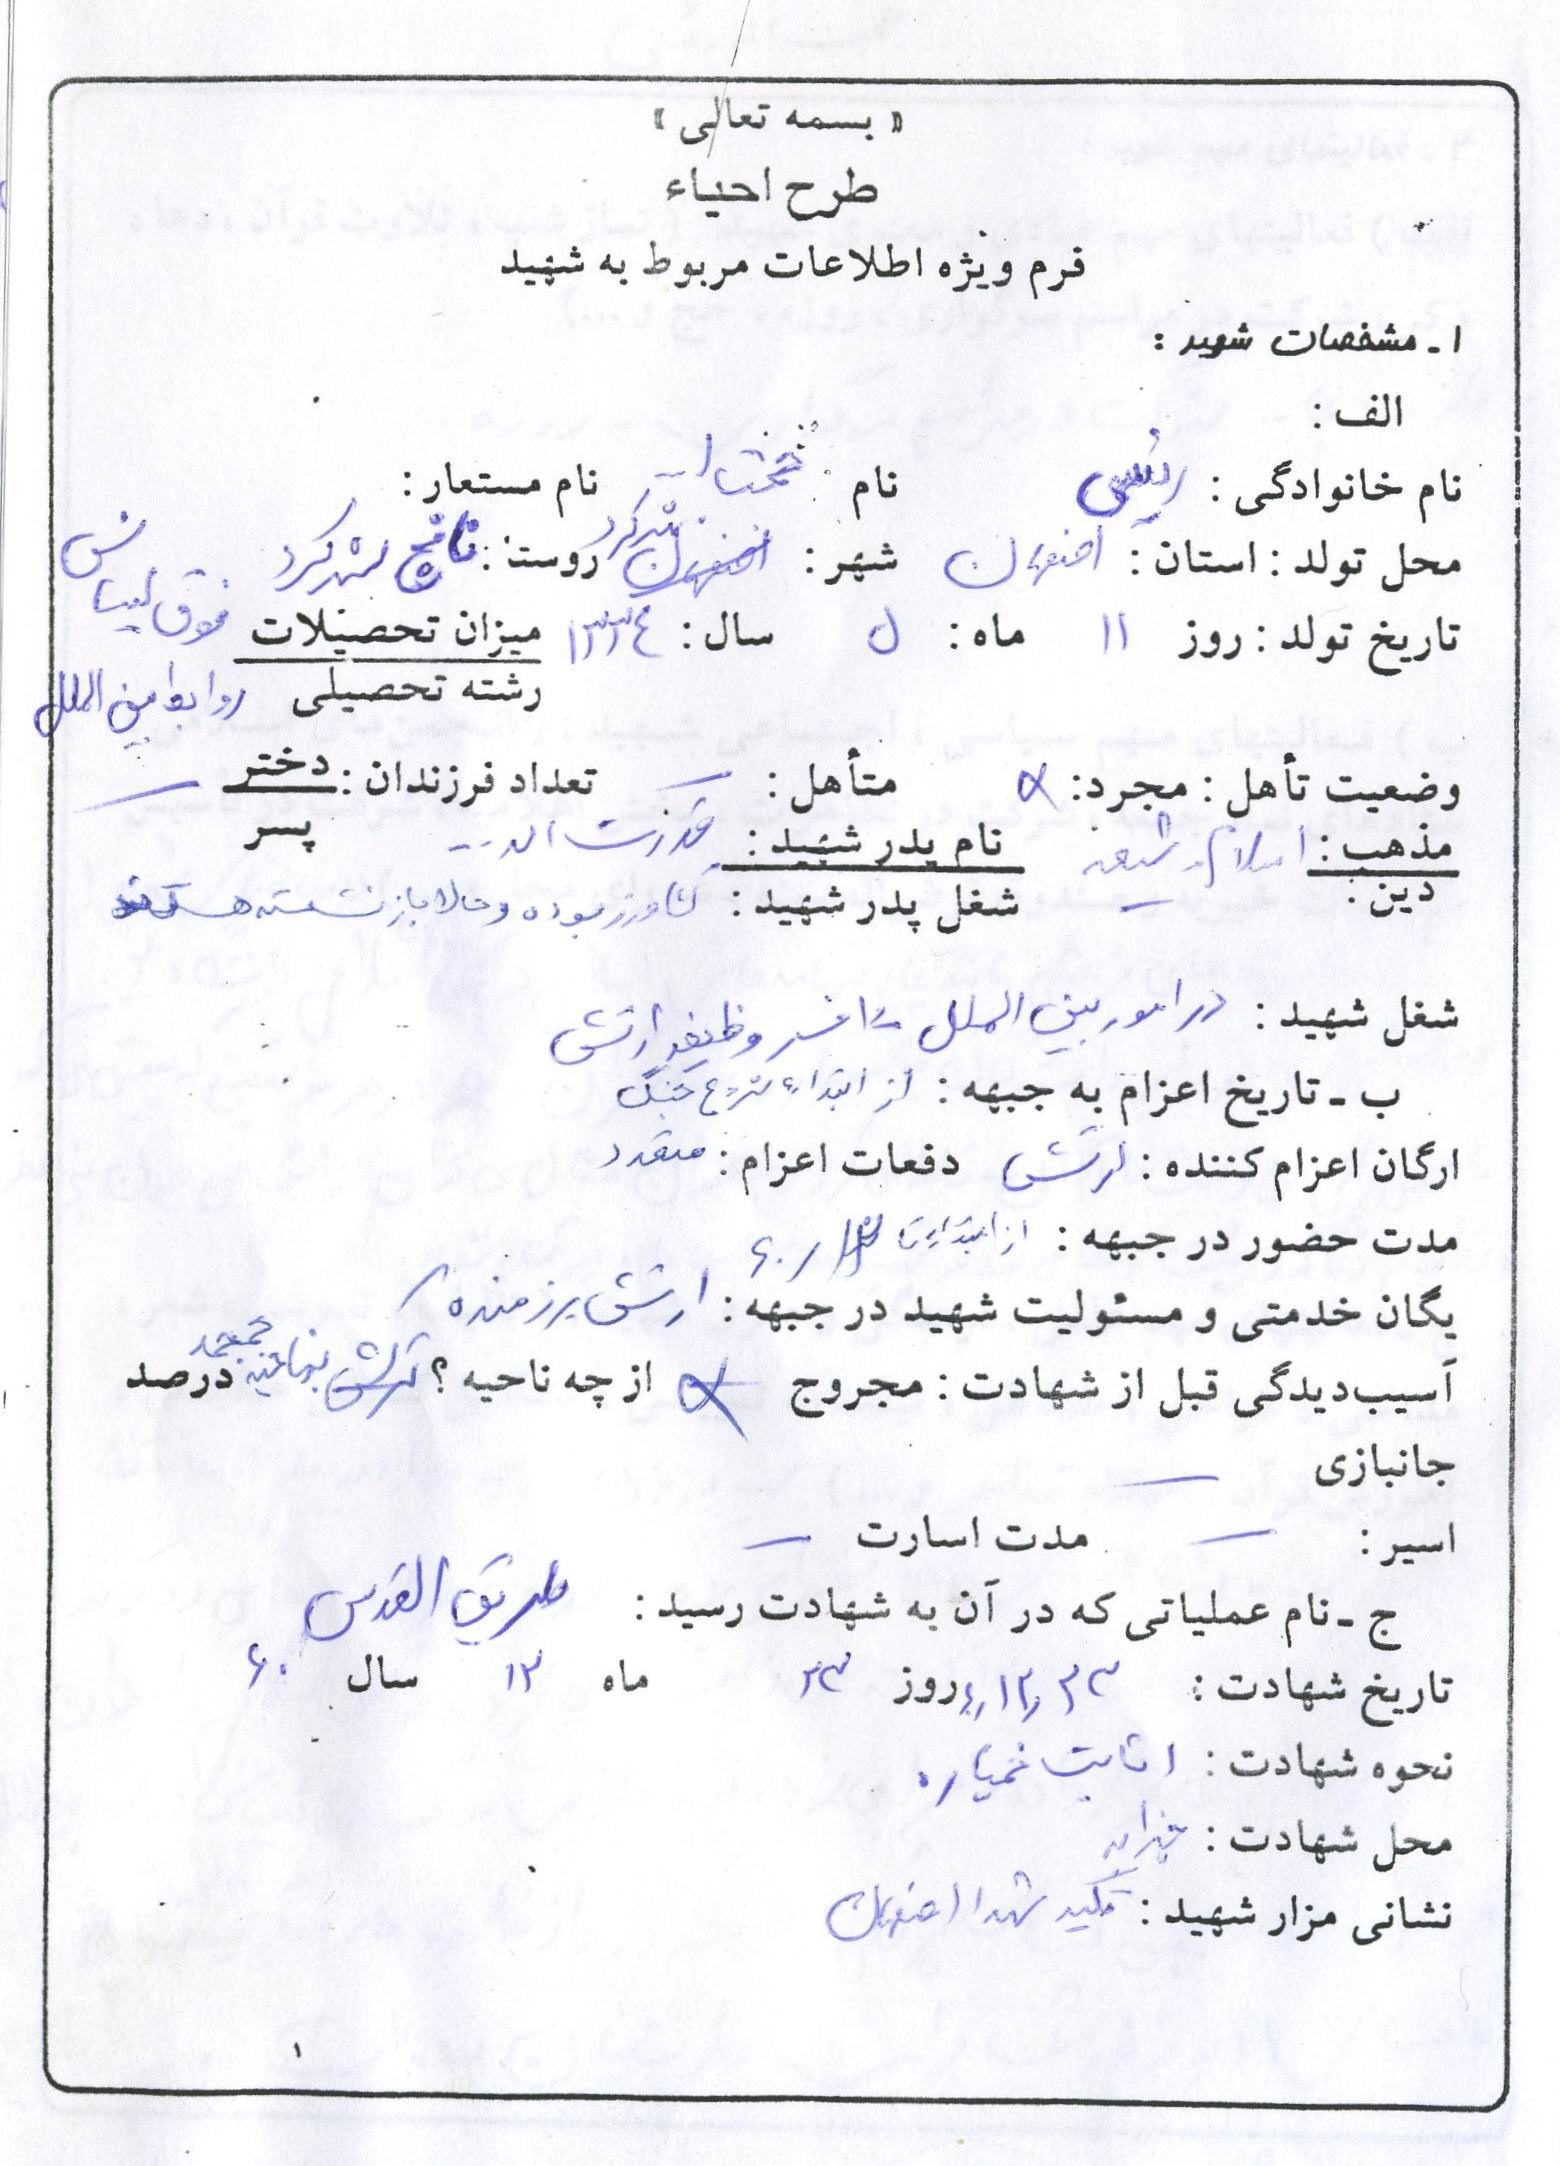 « بسمه تعالی »
طرح احیاء
فرم ویژه اطلاعات مربوط به شهید
۱ ـ مشخصات شهید :
الف :
نام خانوادگی : رئیسی نام نام مستعار :
محل تولد : استان : اصفهان شهر : اصفهان شهرکرد روستا : نافچ شهرکرد
تاریخ تولد : روز ۱۱ ماه : ۵ سال : ۱۳۳۴ میزان تحصیلات فوق لیسانس
رشته تحصیلی روابط بین الملل
وضعیت تأهل : مجرد : × متأهل : ـ تعداد فرزندان : دختر ـ
پسر
مذهب : اسلام ـ شیعه نام پدر شهید : قدرت اله
دین : ـ شغل پدر شهید : کشاورز بوده و حالا بازنشسته هستند
شغل شهید : در امور بین الملل افسر وظیفه ارتش
ب ـ تاریخ اعزام به جبهه : از ابتداء شروع جنگ
ارگان اعزام کننده : ارتش دفعات اعزام : متعدد
مدت حضور در جبهه : از ابتداء تا
یگان خدمتی و مسئولیت شهید در جبهه : ارتش رزمنده
آسیب‌دیدگی قبل از شهادت : مجروح × از چه ناحیه ؟ ترکش بناحیه جمجمه درصد
جانبازی ـ
اسیر : ـ مدت اسارت ـ
ج ـ نام عملیاتی که در آن به شهادت رسید : طریق القدس
تاریخ شهادت : ۶۰٫۱۲٫۲۳ روز ۲۳ ماه ۱۲ سال ۶۰
نحوه شهادت : اثابت خمپاره
محل شهادت :
نشانی مزار شهید : تکیه شهدا اصفهان
۱